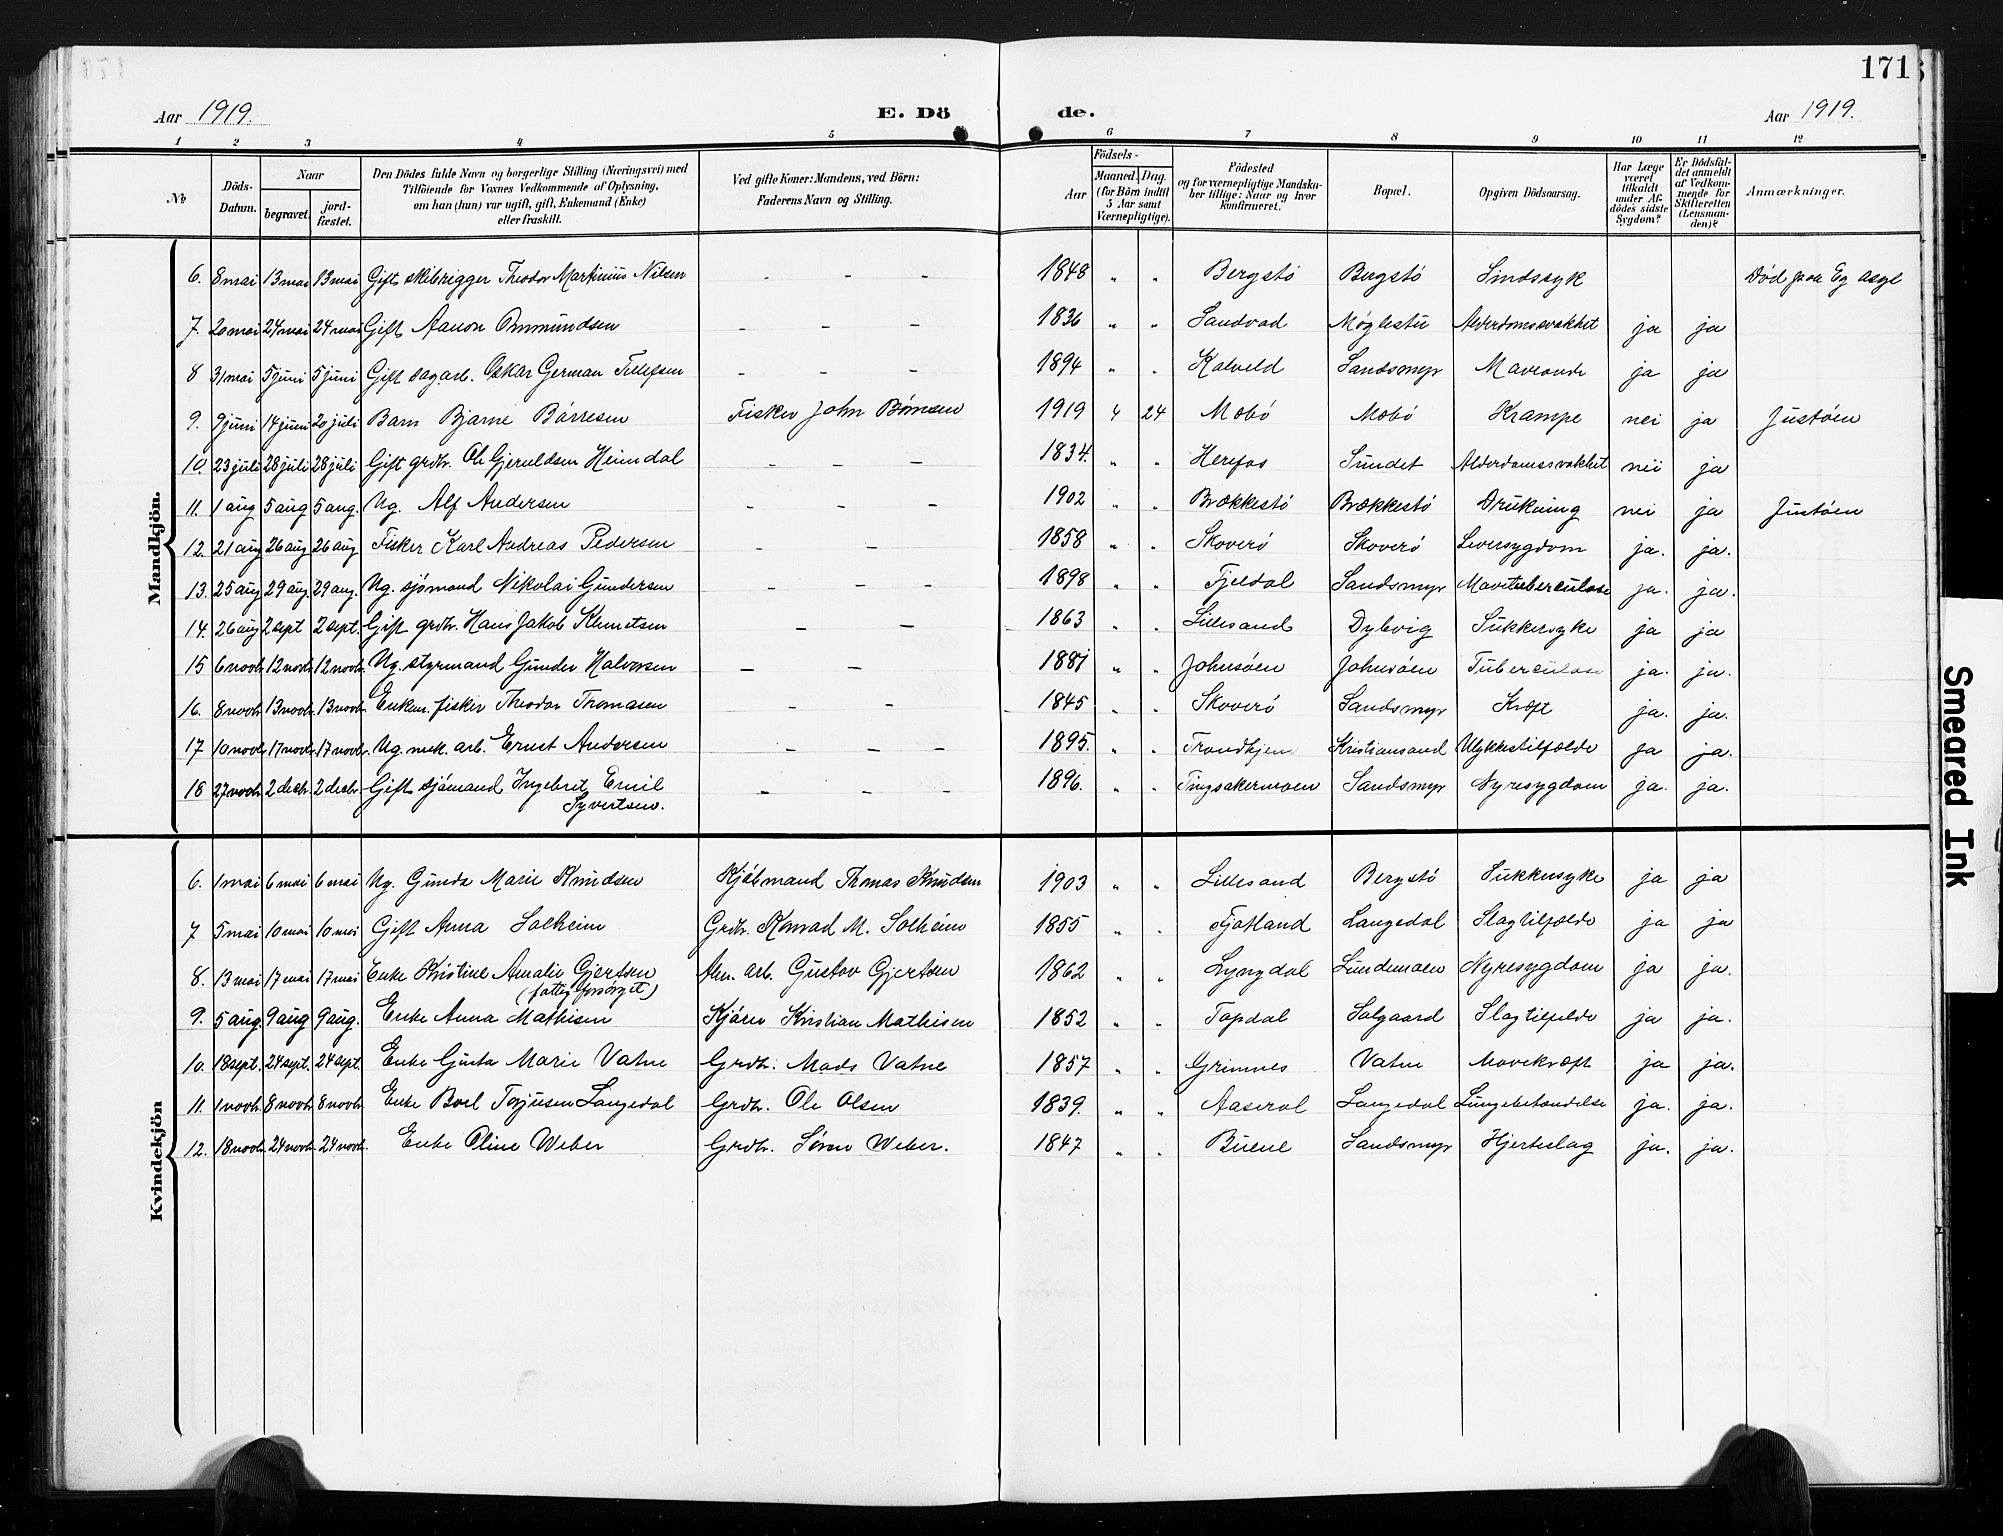 171
Aar 1919. E. Dö de. Aar 1919.
1 2 3 4 5 6 7 8 9 10 11 12
№ Döds-Datum. Naar begravet. jord-fæstet. Den Dödes fulde Navn og borgerlige Stilling (Næringsvei) med Tilföiende for Voxnes Vedkommende af Oplysning, om han (hun) var ugift, gift, Enkemand (Enke) eller fraskilt. Ved gifte Koner: Mandens, ved Börn: Faderens Navn og Stilling. Födsels- Aar Maaned. Dag. (for Börn indtil 5 Aar samt Værnepligtige). Födested og for værnepligtige Mandska-ber tillige: Naar og hvor konfirmeret. Bopæl. Opgiven Dödsaarsag. Har Læge været tilkaldt under Af-dödes sidste Sygdom? Er Dödsfal-det anmeldt af Vedkom-mende for Skifteretten (Lensman-den)? Anmærkninger.
Mandkjön.
6. 8 mai 13 mai 13 mai Gift skibrigger Theodor Martinius Nilsen - - - 1848 " " Bergstø Bergstø Sindssyk Død paa Eg asyl
7. 20 mai 24 mai 24 mai Gift Aanon Ommundsen - - - 1836 " " Sandvad Møglestu Alderdomssvakhet ja ja
8 31 mai 5 juni 5 juni Gift sagarb. Oskar German Tellefsen - - - 1894 " " Kalveld Sandsmyr ja ja
9. 9 juni 14 juni 20 juli Barn Bjarne Børresen Fisker John Børresen 1919 4 24 Mobø Mobø Krampe nei ja Justøen
10. 23 juli 28 juli 28 juli Gift grdbr. Ole Gjeruldsen Heimdal - - - 1834. " " Herefos Sundet Alderdomssvakhet nei ja
11. 1 aug 5 aug 5 aug. Ug. Alf Andersen - - - 1902 " " Brækkestø Brækkestø Drukning nei ja Justøen
12. 21 aug 26 aug 26 aug Fisker Karl Andreas Pedersen - - 1858 " " Skoverø Skoverø Leversygdom ja. ja.
13. 25 aug 29 aug. 29 aug. Ug. sjømand Nikolai Gundersen - - - 1898 " " Fjeldal Sandsmyr Mavetuberculose ja. ja.
14. 26 aug 2 sept 2 sept. Gift grdbr. Hans Jakob Klemetsen - - 1863 " " Lillesand Dybvig Sukkersyke ja ja
15 6 novbr. 12 novbr. 12 novbr. Ug. styrmand Gunder Halvorsen - - 1881 " " Johnsøen Johnsøen Tuberculose ja. ja.
16. 8 novbr. 13 novbr. 13 novbr. Enkem. fisker Theodor Thomasen - - 1845 " " Skoverø Sandsmyr Kræft ja. ja.
17 10 novbr. 17 novbr. 17 novbr. Ug. mek. arb. Ernst Andersen - - - 1895. " " Trondhjem Kristiansand Ulykkestilfælde ja ja.
18 27 novbr. 2 decbr. 2 decbr. Gift sjømand Ingebret Emil - - - 1896. " " Tingsakermoen Sandsmyr Nyresygdom ja. ja.
Syvertsen.
Kvindekjön
6. 1 mai 6 mai 6 mai Ug. Gunda Marie Knudsen Kjøbmand Thomas Knudsen 1903 " " Lillesand Bergstø Sukkersyke ja ja
7 5 mai 10 mai 10 mai Gift Anna Solheim Grdbr. Konrad M. Solheim 1855 " " Fjotland Langedal Slagtilfælde ja ja
8. 13 mai 17 mai 17 mai Enke Kristine Amalie Gjertsen Alm. arb. Gustav Gjertsen 1862 " " Lyngdal Lundemoen Nyresygdom ja ja.
(fattigforsørget)
9. 5 aug. 9 aug 9 aug. Enke Anna Mathisen Kristian Mathisen 1852 " " Topdal Salgaard Slagtilfelde ja ja.
10. 18 sept. 24 sept. 24 sept. Enke Gusta Marie Vatne Grdbr. Mads Vatne 1857 " " Grimnes Vatne Mavekræft ja ja.
11. 1 novbr. 8 novbr. 8 novbr. Enke Boel Torjusen Langedal Grdbr. Ole Olsen 1839. " " Aaseral Langedal Lungebetændelse ja. ja.
12. 18 novbr. 24 novbr. 24 novbr. Enke Oline Weber Grdbr. Søren Weber. 1847 " " Buene Sandsmyr Hjerteslag ja. ja.
Smeared Ink